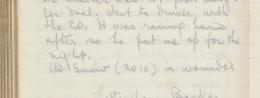 for Mal. Went to dinner with
the CO. It was raining hard
after so he put me up for the
night.
Snow (No 10) is wounded.